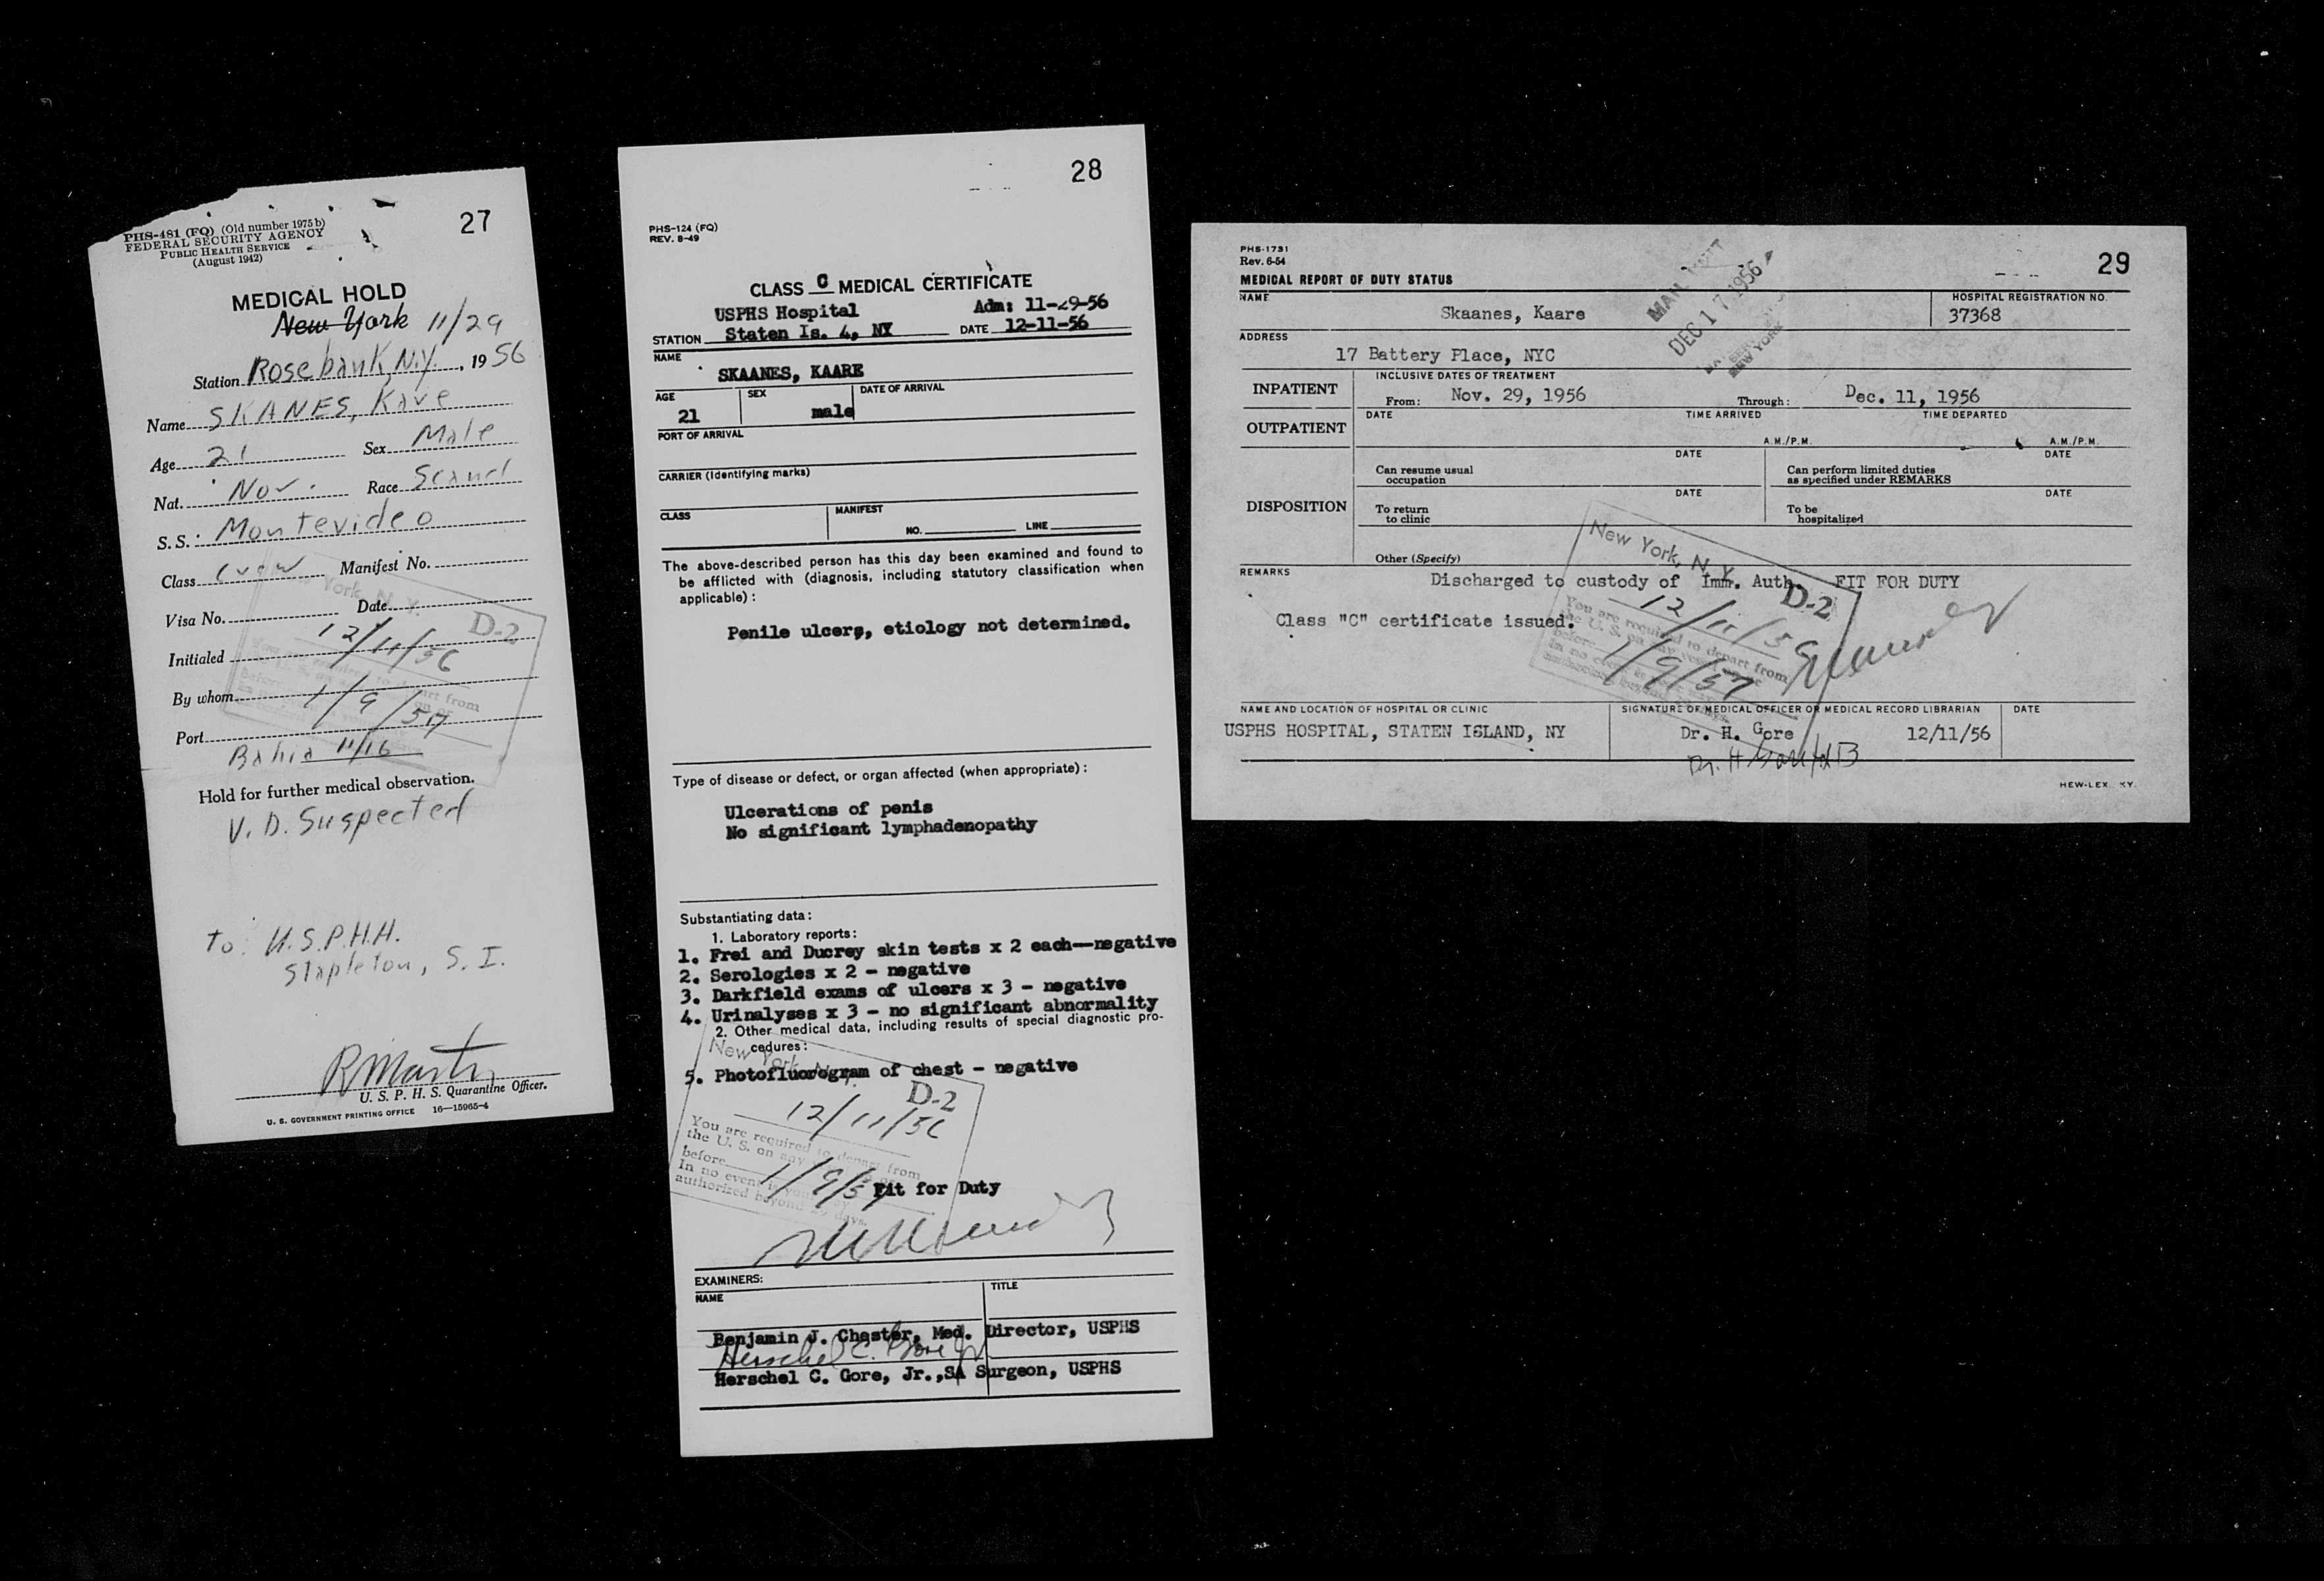 27
PHS-481 (FQ) (Old number 1975 b)
FEDERAL SECURITY AGENCY
PUBLIC HEALTH SERVICE
(August 1942)
MEDICAL HOLD
New York 11/29
Station Rosebank, N.Y., 1956
Name SKANES, Kare
Age 21 Sex Male
Nat. Nor. Race Scand
S. S. Montevideo
Class Crew Manifest No.
Visa No. Date
Initialed
By whom
Port
Bahia 11/16
York, N. Y.
D-2
12/11/56
1/9/57
Hold for further medical observation.
V. D. Suspected
To: U.S.P.H.H.
Stapleton, S. I.
R Martin
U. S. P. H. S. Quarantine Officer.
U. S. GOVERNMENT PRINTING OFFICE 16—15965-4
28
PHS-124 (FQ)
REV. 8-49
CLASS C MEDICAL CERTIFICATE
USPHS Hospital Adm: 11-29-56
STATION Staten Is. 4, NY DATE 12-11-56
NAME
SKAANES, KAARE
AGE SEX DATE OF ARRIVAL
21 male
PORT OF ARRIVAL
CARRIER (Identifying marks)
CLASS MANIFEST
NO. LINE
The above-described person has this day been examined and found to
be afflicted with (diagnosis, including statutory classification when
applicable):
Penile ulcers, etiology not determined.
Type of disease or defect, or organ affected (when appropriate):
Ulcerations of penis
No significant lymphadenopathy
Substantiating data:
1. Laboratory reports:
1. Frei and Ducrey skin tests x 2 each--negative
2. Serologies x 2 - negative
3. Darkfield exams of ulcers x 3 - negative
4. Urinalyses x 3 - no significant abnormality
2. Other medical data, including results of special diagnostic pro-
cedures:
5. Photofluorogram of chest - negative
New York, N. Y.
D-2
12/11/56
You are required to depart from
the U. S. on any
before
1/9/57
In no event is your
authorized beyond 29 days.
Fit for Duty
EXAMINERS:
NAME TITLE
Benjamin J. Chester, Med. Director, USPHS
Herschel C. Gore Jr
Herschel C. Gore, Jr.,SA Surgeon, USPHS
29
PHS-1731
Rev. 6-54
MEDICAL REPORT OF DUTY STATUS
NAME HOSPITAL REGISTRATION NO.
Skaanes, Kaare 37368
DEC 17 1956
NEW YORK
ADDRESS
17 Battery Place, NYC
INPATIENT INCLUSIVE DATES OF TREATMENT
From: Nov. 29, 1956 Through: Dec. 11, 1956
OUTPATIENT DATE TIME ARRIVED TIME DEPARTED
A.M./P.M. A.M./P.M.
DISPOSITION
Can resume usual occupation DATE Can perform limited duties as specified under REMARKS DATE
To return to clinic DATE To be hospitalized DATE
Other (Specify)
REMARKS
Discharged to custody of Imm. Auth. FIT FOR DUTY
Class "C" certificate issued.
New York, N. Y.
D-2
12/11/56
You are required to depart from
the U. S. on any
before
1/9/57
NAME AND LOCATION OF HOSPITAL OR CLINIC SIGNATURE OF MEDICAL OFFICER OR MEDICAL RECORD LIBRARIAN DATE
USPHS HOSPITAL, STATEN ISLAND, NY Dr. H. Gore 12/11/56
HEW-LEX. KY.